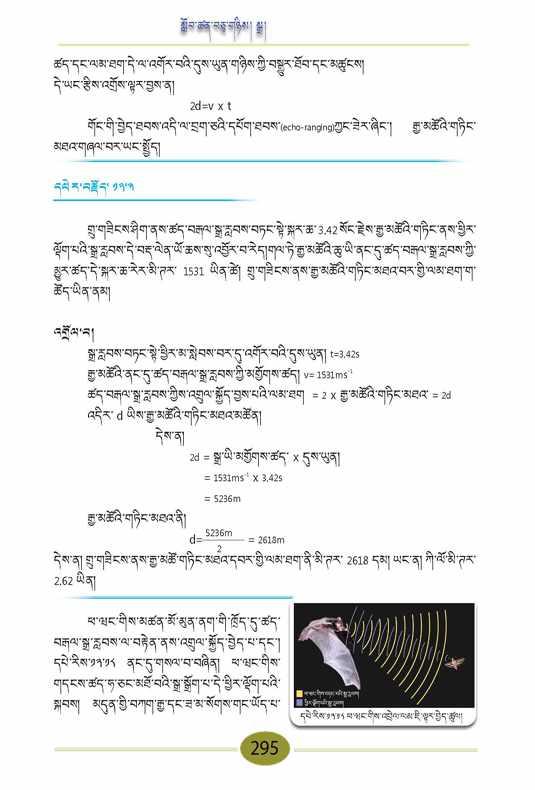 སློབ་ཚན་བཅུ་གཉིས། སྒྲ།
ཚད་དང་ལམ་ཐག་དེ་ལ་འགོར་བའི་དུས་ཡུན་གཉིས་ཀྱི་བསྒྱུར་ཐོབ་དང་མཚུངས།
དེ་ཡང་རྩིས་འགྲོས་ལྟར་བྱས་ན།
2d=v x t
གོང་གི་བྱེད་ཐབས་འདི་ལ་བྲག་ཅའི་དཔོག་ཐབས་(echo-ranging)ཀྱང་ཟེར་ཞིང་། རྒྱ་མཚོའི་གཏིང་
མཐའ་གཞལ་བར་ཡང་སྤྱོད།
དཔེར་བརྗོད་ ༡༢.༢
གྲུ་གཟིངས་ཤིག་ནས་ཚད་བརྒལ་སྒྲ་རླབས་བཏང་སྟེ་སྐར་ཆ་ 3.42 སོང་རྗེས་རྒྱ་མཚོའི་གཏིང་ནས་ཕྱིར་
ལྡོག་པའི་སྒྲ་རླབས་དེ་བརྡ་ལེན་ཡོ་ཆས་སུ་འབྱོར་བ་རེད།གལ་ཏེ་རྒྱ་མཚོའི་ཆུ་ཡི་ནང་དུ་ཚད་བརྒལ་སྒྲ་རླབས་ཀྱི་
མྱུར་ཚད་དེ་སྐར་ཆ་རེར་མི་ཊར་ 1531 ཡིན་ཚེ། གྲུ་གཟིངས་ནས་རྒྱ་མཚོའི་གཏིང་མཐའ་བར་གྱི་ལམ་ཐག་ག་
ཚོད་ཡིན་ནམ།
འགྲོལ་བ།
སྒྲ་རླབས་བཏང་སྟེ་ཕྱིར་མ་སླེབས་བར་དུ་འགོར་བའི་དུས་ཡུན། t=3,42s
རྒྱ་མཚོའི་ནང་དུ་ཚད་བརྒལ་སྒྲ་རླབས་ཀྱི་མགྱོགས་ཚད། v= 1531ms⁻¹
ཚད་བརྒལ་སྒྲ་རླབས་ཀྱིས་འགྲུལ་སྐྱོད་བྱས་པའི་ལམ་ཐག = 2 x རྒྱ་མཚོའི་གཏིང་མཐའ་ = 2d
འདིར་ d ཡིས་རྒྱ་མཚོའི་གཏིང་མཐའ་མཚོན།
དེས་ན།
2d = སྒྲ་ཡི་མགྱོགས་ཚད་ x དུས་ཡུན།
= 1531ms⁻¹ x 3,42s
= 5236m
རྒྱ་མཚོའི་གཏིང་མཐའ་ནི།
d= 5236m/2 = 2618m
དེས་ན། གྲུ་གཟིངས་ནས་རྒྱ་མཚོ་གཏིང་མཐའ་དབར་གྱི་ལམ་ཐག་ནི་མི་ཊར་ 2618 དམ། ཡང་ན། ཀི་ལོ་མི་ཊར་
2,62 ཡིན།
ཕ་ཝང་གིས་མཚན་མོ་མུན་ནག་གི་ཁྲོད་དུ་ཚད་
བརྒལ་སྒྲ་རླབས་ལ་བརྟེན་ནས་འགྲུལ་སྐྱོད་བྱེད་པ་དང་།
དཔེ་རིས་༡༢༡༨ ནང་དུ་གསལ་བ་བཞིན། ཕ་ཝང་གིས་
གདངས་ཚད་ཧ་ཅང་མཐོ་བའི་སྒྲ་སྒྲོག་པ་དེ་ཕྱིར་ལྡོག་པའི་
སྐབས། མདུན་གྱི་བཀག་རྒྱ་དང་ཟ་མ་སོགས་གང་ཡོད་པ་
དཔེ་རིས་༡༢༡༨ ཕ་ཝང་གིས་འབྲེལ་ལམ་ཇི་ལྟར་བྱེད་ཚུལ།
295